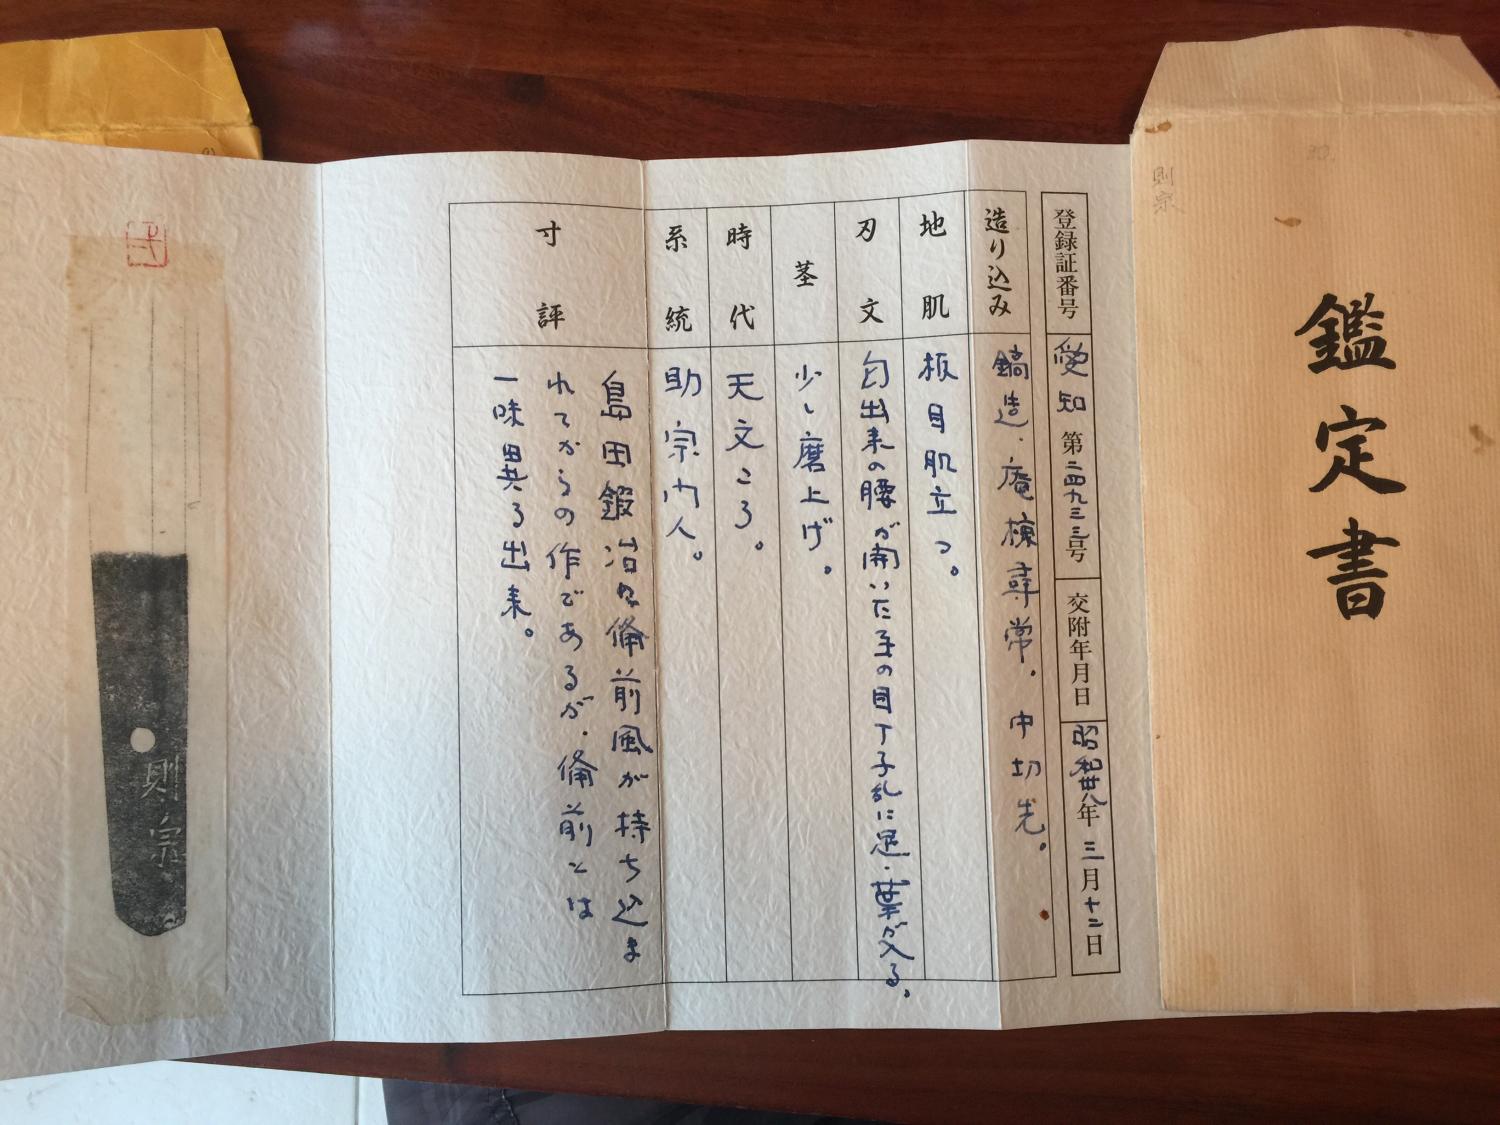 鑑定書
則宗
登録証番号 愛知 第二四九三三号 交附年月日 昭和卅八年 三月十二日
造り込み 鎬造、庵棟尋常、中切先。
地肌 板目肌立つ。
刃文 匂出来の腰が開いた互の目丁子乱に足・葉が入る。
茎 少し磨上げ。
時代 天文ころ。
系統 助宗門人。
寸評 島田鍛冶に備前風が持ち込ま
れてからの作であるが、備前とは
一味異る出来。
則宗